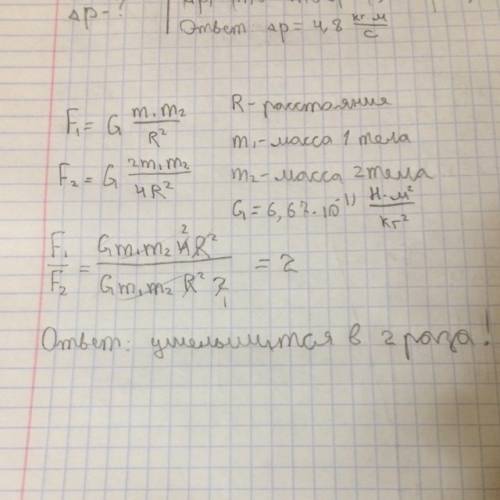 Δp-?
Ответ: Δp = 4,8 кг·м/с
F₁ = G m₁m₂/R²
R - расстояния
m₁ - масса 1 тела
F₂ = G 2m₁m₂/4R²
m₂ - масса 2 тела
G = 6,67·10⁻¹¹ Н·м²/кг²
F₁/F₂ = Gm₁m₂ 4R²/Gm₁m₂ R² 2 = 2
Ответ: уменьшится в 2 раза!